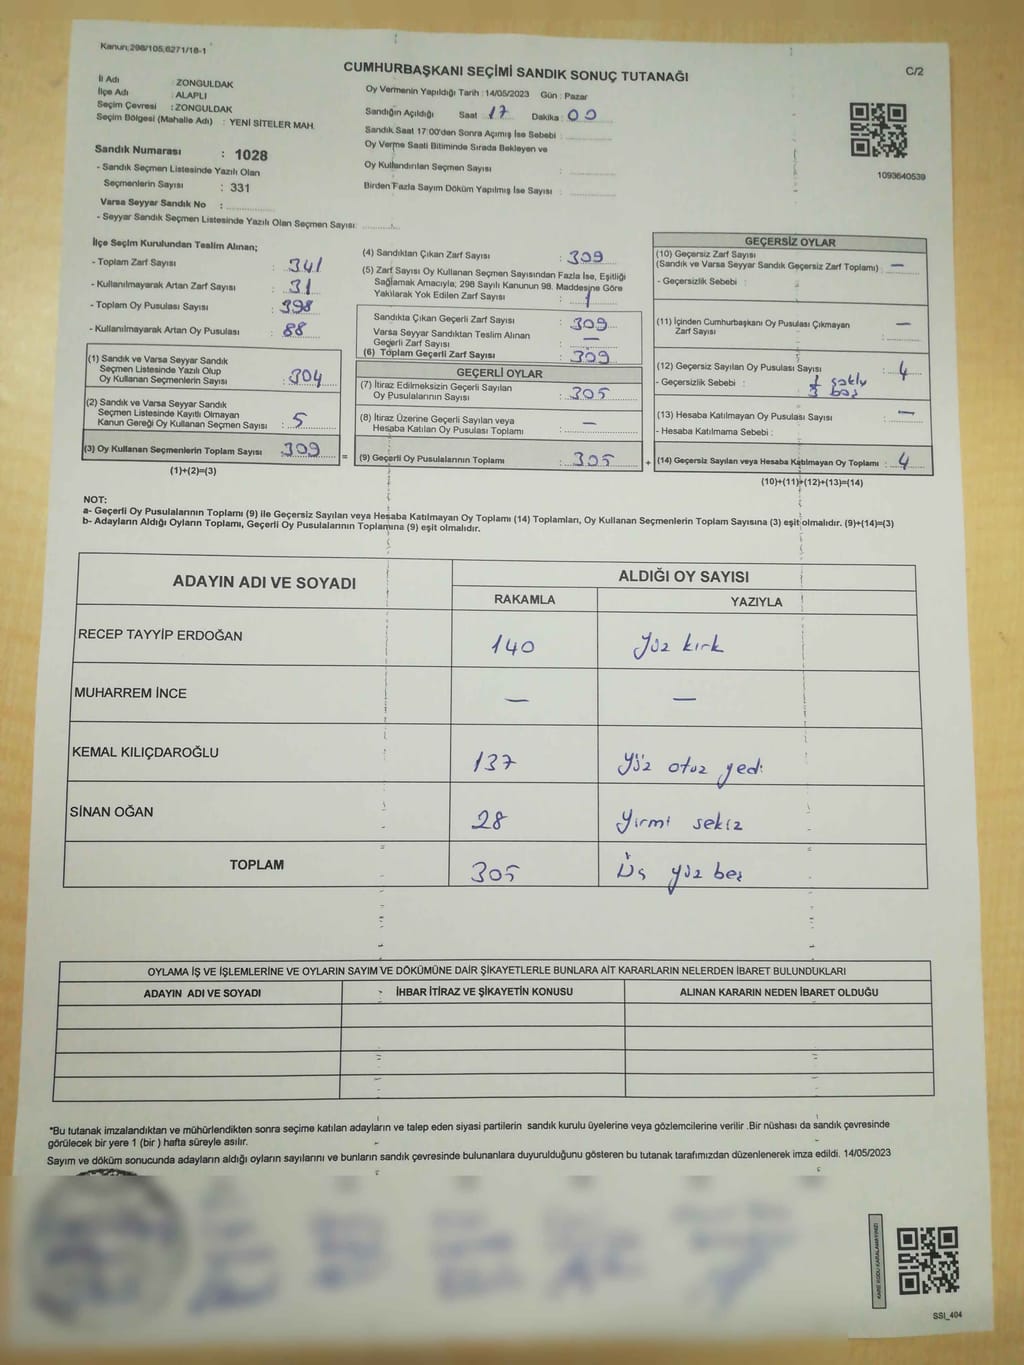 Kanun:298/105,6271/16-1
CUMHURBAŞKANI SEÇİMİ SANDIK SONUÇ TUTANAĞI
C/2
İl Adı : ZONGULDAK
İlçe Adı : ALAPLI
Seçim Çevresi : ZONGULDAK
Seçim Bölgesi (Mahalle Adı) : YENİ SİTELER MAH.
Sandık Numarası : 1028
- Sandık Seçmen Listesinde Yazılı Olan
Seçmenlerin Sayısı : 331
Varsa Seyyar Sandık No :
- Seyyar Sandık Seçmen Listesinde Yazılı Olan Seçmen Sayısı:
Oy Vermenin Yapıldığı Tarih : 14/05/2023 Gün : Pazar
Sandığın Açıldığı Saat : 17 Dakika : 00
Sandık Saat 17:00'den Sonra Açımış İse Sebebi :
Oy Verme Saati Bitiminde Sırada Bekleyen ve
Oy Kullandırılan Seçmen Sayısı :
Birden Fazla Sayım Döküm Yapılmış İse Sayısı :
1093640539
İlçe Seçim Kurulundan Teslim Alınan;
- Toplam Zarf Sayısı : 341
- Kullanılmayarak Artan Zarf Sayısı : 31
- Toplam Oy Pusulası Sayısı : 398
- Kullanılmayarak Artan Oy Pusulası : 88
(1) Sandık ve Varsa Seyyar Sandık
Seçmen Listesinde Yazılı Olup
Oy Kullanan Seçmenlerin Sayısı : 304
(2) Sandık ve Varsa Seyyar Sandık
Seçmen Listesinde Kayıtlı Olmayan
Kanun Gereği Oy Kullanan Seçmen Sayısı : 5
(3) Oy Kullanan Seçmenlerin Toplam Sayısı : 309
(1)+(2)=(3)
(4) Sandıktan Çıkan Zarf Sayısı : 309
(5) Zarf Sayısı Oy Kullanan Seçmen Sayısından Fazla İse, Eşitliği
Sağlamak Amacıyla; 298 Sayılı Kanunun 98. Maddesine Göre
Yakılarak Yok Edilen Zarf Sayısı :
Sandıkta Çıkan Geçerli Zarf Sayısı : 309
Varsa Seyyar Sandıktan Teslim Alınan
Geçerli Zarf Sayısı : —
(6) Toplam Geçerli Zarf Sayısı : 309
=
GEÇERLİ OYLAR
(7) İtiraz Edilmeksizin Geçerli Sayılan
Oy Pusulalarının Sayısı : 305
(8) İtiraz Üzerine Geçerli Sayılan veya
Hesaba Katılan Oy Pusulası Toplamı : —
(9) Geçerli Oy Pusulalarının Toplamı : 305
+
GEÇERSİZ OYLAR
(10) Geçersiz Zarf Sayısı
(Sandık ve Varsa Seyyar Sandık Geçersiz Zarf Toplamı) : —
- Geçersizlik Sebebi :
(11) İçinden Cumhurbaşkanı Oy Pusulası Çıkmayan
Zarf Sayısı : —
(12) Geçersiz Sayılan Oy Pusulası Sayısı : 4
- Geçersizlik Sebebi :
boş
(13) Hesaba Katılmayan Oy Pusulası Sayısı : —
- Hesaba Katılmama Sebebi :
(14) Geçersiz Sayılan veya Hesaba Katılmayan Oy Toplamı : 4
(10)+(11)+(12)+(13)=(14)
NOT:
a- Geçerli Oy Pusulalarının Toplamı (9) ile Geçersiz Sayılan veya Hesaba Katılmayan Oy Toplamı (14) Toplamları, Oy Kullanan Seçmenlerin Toplam Sayısına (3) eşit olmalıdır. (9)+(14)=(3)
b- Adayların Aldığı Oyların Toplamı, Geçerli Oy Pusulalarının Toplamına (9) eşit olmalıdır.
ADAYIN ADI VE SOYADI
ALDIĞI OY SAYISI
RAKAMLA YAZIYLA
RECEP TAYYİP ERDOĞAN 140 Yüz kırk
MUHARREM İNCE — —
KEMAL KILIÇDAROĞLU 137 Yüz otuz yedi
SİNAN OĞAN 28 Yirmi sekiz
TOPLAM 305 Üç yüz beş
OYLAMA İŞ VE İŞLEMLERİNE VE OYLARIN SAYIM VE DÖKÜMÜNE DAİR ŞİKAYETLERLE BUNLARA AİT KARARLARIN NELERDEN İBARET BULUNDUKLARI
ADAYIN ADI VE SOYADI İHBAR İTİRAZ VE ŞİKAYETİN KONUSU ALINAN KARARIN NEDEN İBARET OLDUĞU
*Bu tutanak imzalandıktan ve mühürlendikten sonra seçime katılan adayların ve talep eden siyasi partilerin sandık kurulu üyelerine veya gözlemcilerine verilir .Bir nüshası da sandık çevresinde
görülecek bir yere 1 (bir ) hafta süreyle asılır.
Sayım ve döküm sonucunda adayların aldığı oyların sayılarını ve bunların sandık çevresinde bulunanlara duyurulduğunu gösteren bu tutanak tarafımızdan düzenlenerek imza edildi. 14/05/2023
KARE KODU KARALAMAYINIZ!
SSI_404